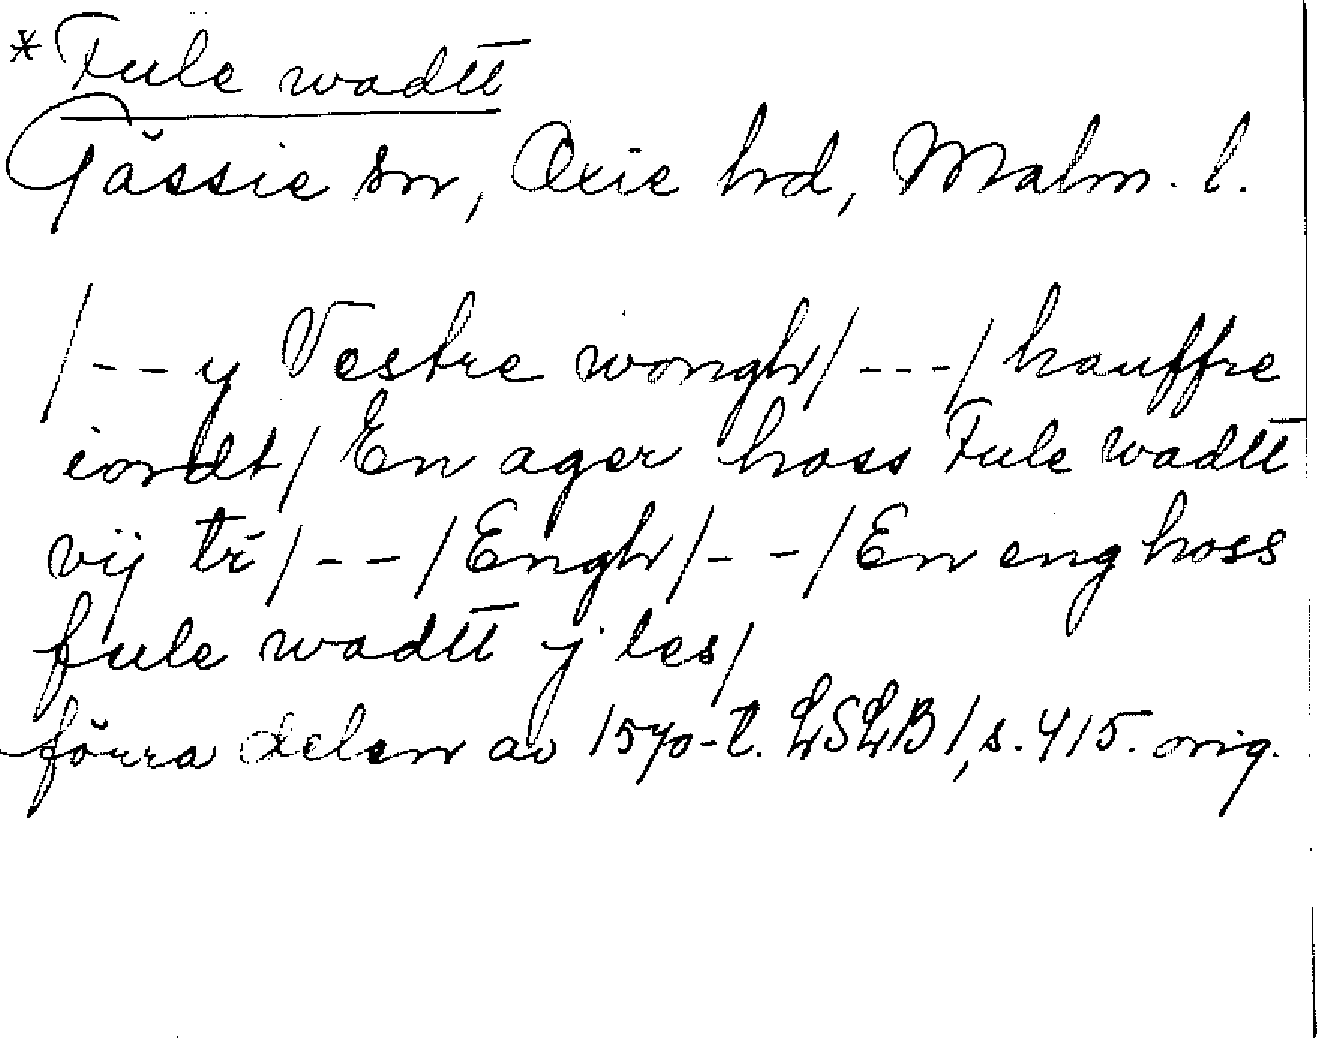 *Fule wadtt̄
Gässie sn, Oxie hrd, Malm. l.
/--y Vestre wongh/---/hauffre
iordt/ En ager hoss Fule wadtt̄
vij tr̄/--/Engh/--/En eng hoss
fule wadtt̄ j les/
förra delen av 1570-t. LSLB 1, s. 415. orig.